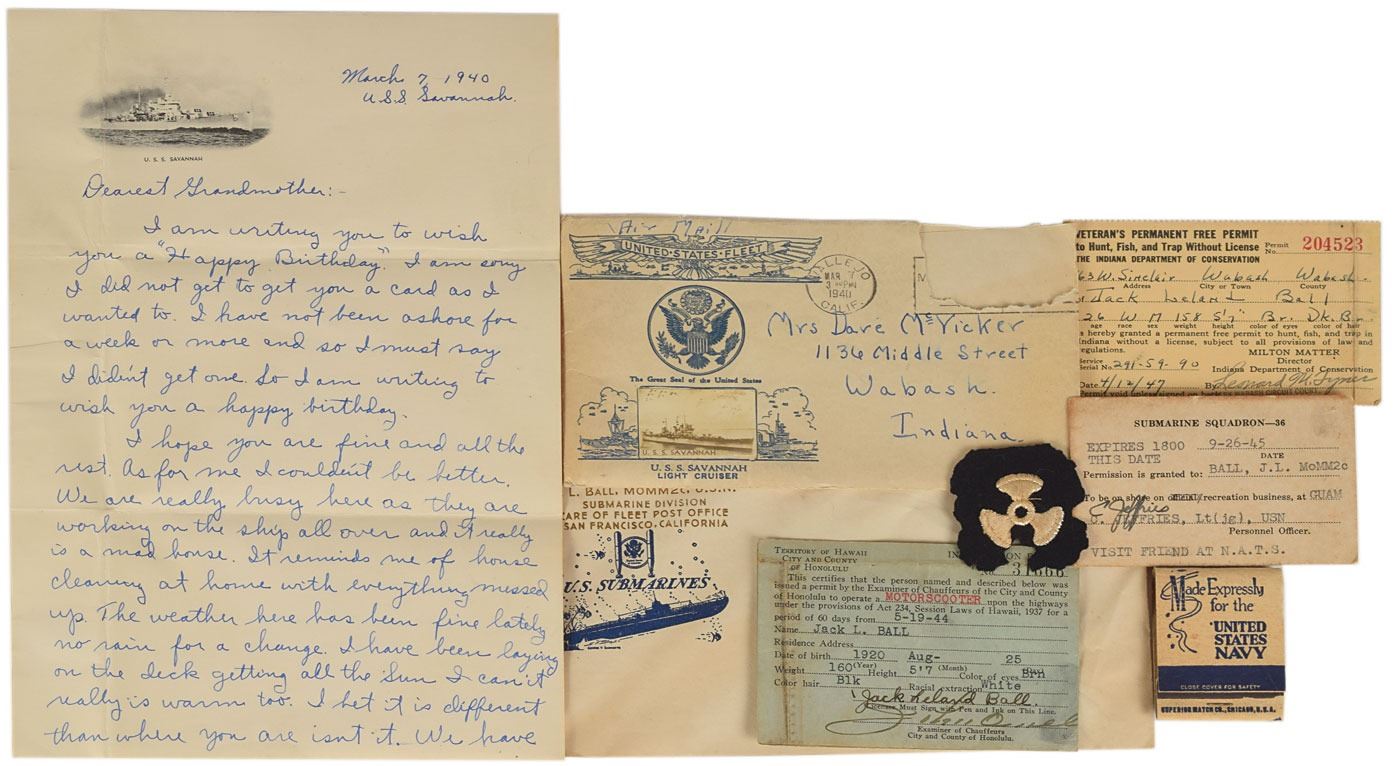 March 7, 1940
U.S.S. Savannah.
U. S. S. SAVANNAH
Dearest Grandmother:-
I am writing you to wish
you a "Happy Birthday". I am sorry
I did not get to get you a card as I
wanted to. I have not been ashore for
a week or more and so I must say
I didn't get one. So I am writing to
wish you a happy birthday.
I hope you are fine and all the
rest. As for me I couldn't be better.
We are really busy here as they are
working on the ship all over and it really
is a mad house. It reminds me of house
cleaning at home with everything messed
up. The weather here has been fine lately
no rain for a change. I have been laying
on the deck getting all the Sun I can it
really is warm too. I bet it is different
than where you are isn't it. We have
Air Mail
UNITED·STATES·FLEET
VALLEJO
MAR 7
3 PM
1940
CALIF.
The Great Seal of the United States
U. S. S. SAVANNAH
U. S. S. SAVANNAH
LIGHT CRUISER
Mrs Dave McVicker
1136 Middle Street
Wabash.
Indiana.
L. BALL, MOMM2c, U.S.N.
SUBMARINE DIVISION
CARE OF FLEET POST OFFICE
SAN FRANCISCO, CALIFORNIA
U.S. SUBMARINES
VETERAN'S PERMANENT FREE PERMIT
to Hunt, Fish, and Trap Without License
Permit No. 204523
THE INDIANA DEPARTMENT OF CONSERVATION
63 W. Sinclair Wabash Wabash
Address City or Town County
Jack Leland Ball
26 W M 158 5'7" Br. Dk. Br.
age race sex weight height color of eyes color of hair
is hereby granted a permanent free permit to hunt, fish, and trap in
Indiana without a license, subject to all provisions of law and
regulations.
MILTON MATTER
Director
Service
Serial No. 291-59-90 Indiana Department of Conservation
Date 4/12/47 By
Permit void unless signed
SUBMARINE SQUADRON—36
EXPIRES 1800 9-26-45
THIS DATE DATE
Permission is granted to: BALL, J.L. MoMM2c
To be on shore on recreation business, at GUAM
JEFFRIES, Lt(jg), USN
Personnel Officer.
VISIT FRIEND AT N.A.T.S.
TERRITORY OF HAWAII
CITY AND COUNTY
OF HONOLULU
This certifies that the person named and described below was
issued a permit by the Examiner of Chauffeurs of the City and County
of Honolulu to operate a MOTORSCOOTER upon the highways
under the provisions of Act 234, Session Laws of Hawaii, 1937 for a
period of 60 days from 5-19-44
Name Jack L. BALL
Residence Address
Date of birth 1920 Aug- 25
(Year) (Month)
Weight 160 Height 5'7 Color of eyes Brn
Color hair Blk Racial extraction White
Jack Leland Ball.
Licensee Must Sign with Pen and Ink on This Line.
Examiner of Chauffeurs
City and County of Honolulu.
Made Expressly
for the
UNITED
STATES
NAVY
CLOSE COVER FOR SAFETY
SUPERIOR MATCH CO., CHICAGO, U.S.A.